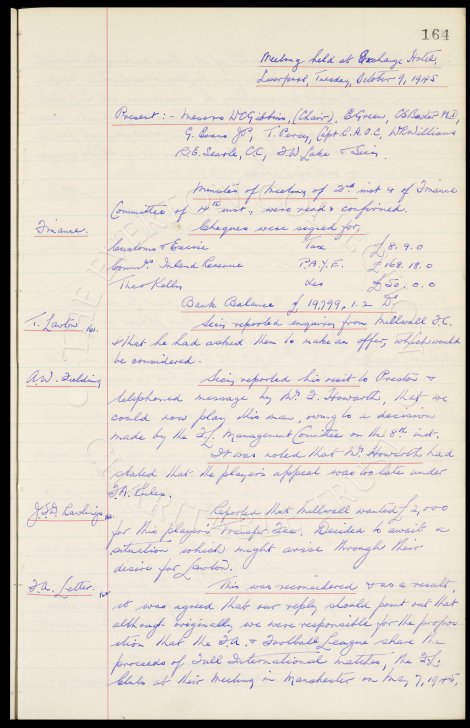 164
Meeting held at Exchange Hotel,
Liverpool, Tuesday, October 9, 1945
Present :- Messrs W C Gibbins, (Chair), E Green, C S Baxter M.D,
G. Evans JP, T. Percy, Capt C.A.O.C, W R Williams
R. E. Searle, C.C, F. W Lake & Secy.
Minutes of Meeting of 2nd inst & of Finance
Committee of 4th inst., were read & confirmed.
Finance. Cheques were signed for,
Customs & Excise Tax £8. 9. 0
Commrs. Inland Revenue P.A.Y.E. £168. 18. 0
Theo Kelly £50. 0. 0
Bank Balance £19,799. 1. 2 Dr
T. Lawton Secy reported enquiry from Millwall F.C.
& that he had asked them to make an offer, which would
be considered.
A.W. Fielding Secy reported his visit to Preston &
telephoned message by Mr F. Howarth, that we
could now play this man, owing to a decision
made by the F.L. Management Committee on the 8th inst.
It was noted that Mr Howarth had
stated that the players appeal was too late under
F.A. Rules.
J.S.D. Rawlings Reported that Millwall wanted £2,000
for this player's Transfer Fee. Decided to await a
situation which might arise through their
desire for Lawton.
F.A. Letter. This was reconsidered & as a result,
it was agreed that our reply should point out that
although originally we were responsible for the propos-
ition that the F.A. & Football League share the
proceeds of Full International matches, the F.L.
Clubs at their Meeting in Manchester on May 7, 1945,